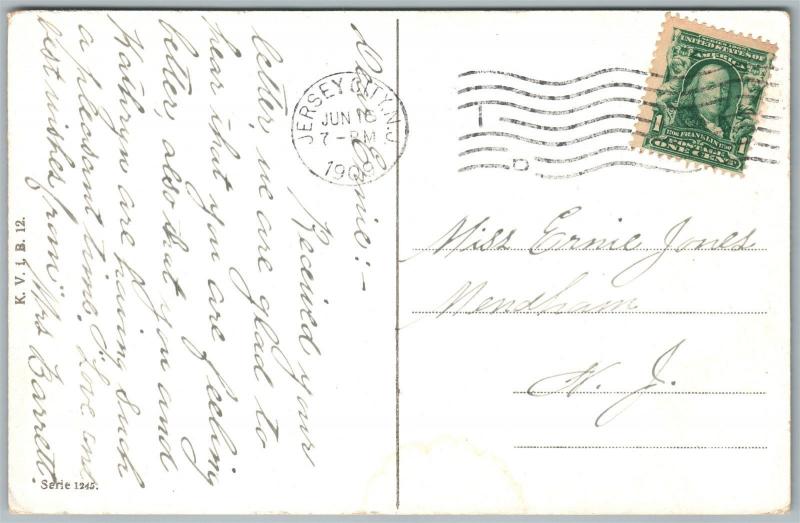 Dear Ernie:-
Received your
letter, we are glad to
hear that you are feeling
better, also that you and
Kathryn are having such
a pleasant time. Love and
best wishes from Mrs Barrett.
K. V. i. B. 12.
Serie 1245.
JERSEY CITY, N.J.
JUN 16
7-PM
1909
SERIES 1902
UNITED STATES OF
AMERICA
1706 FRANKLIN 1790
POSTAGE
1 ONE CENT 1
Miss Ernie Jones
Mendham
N. J.